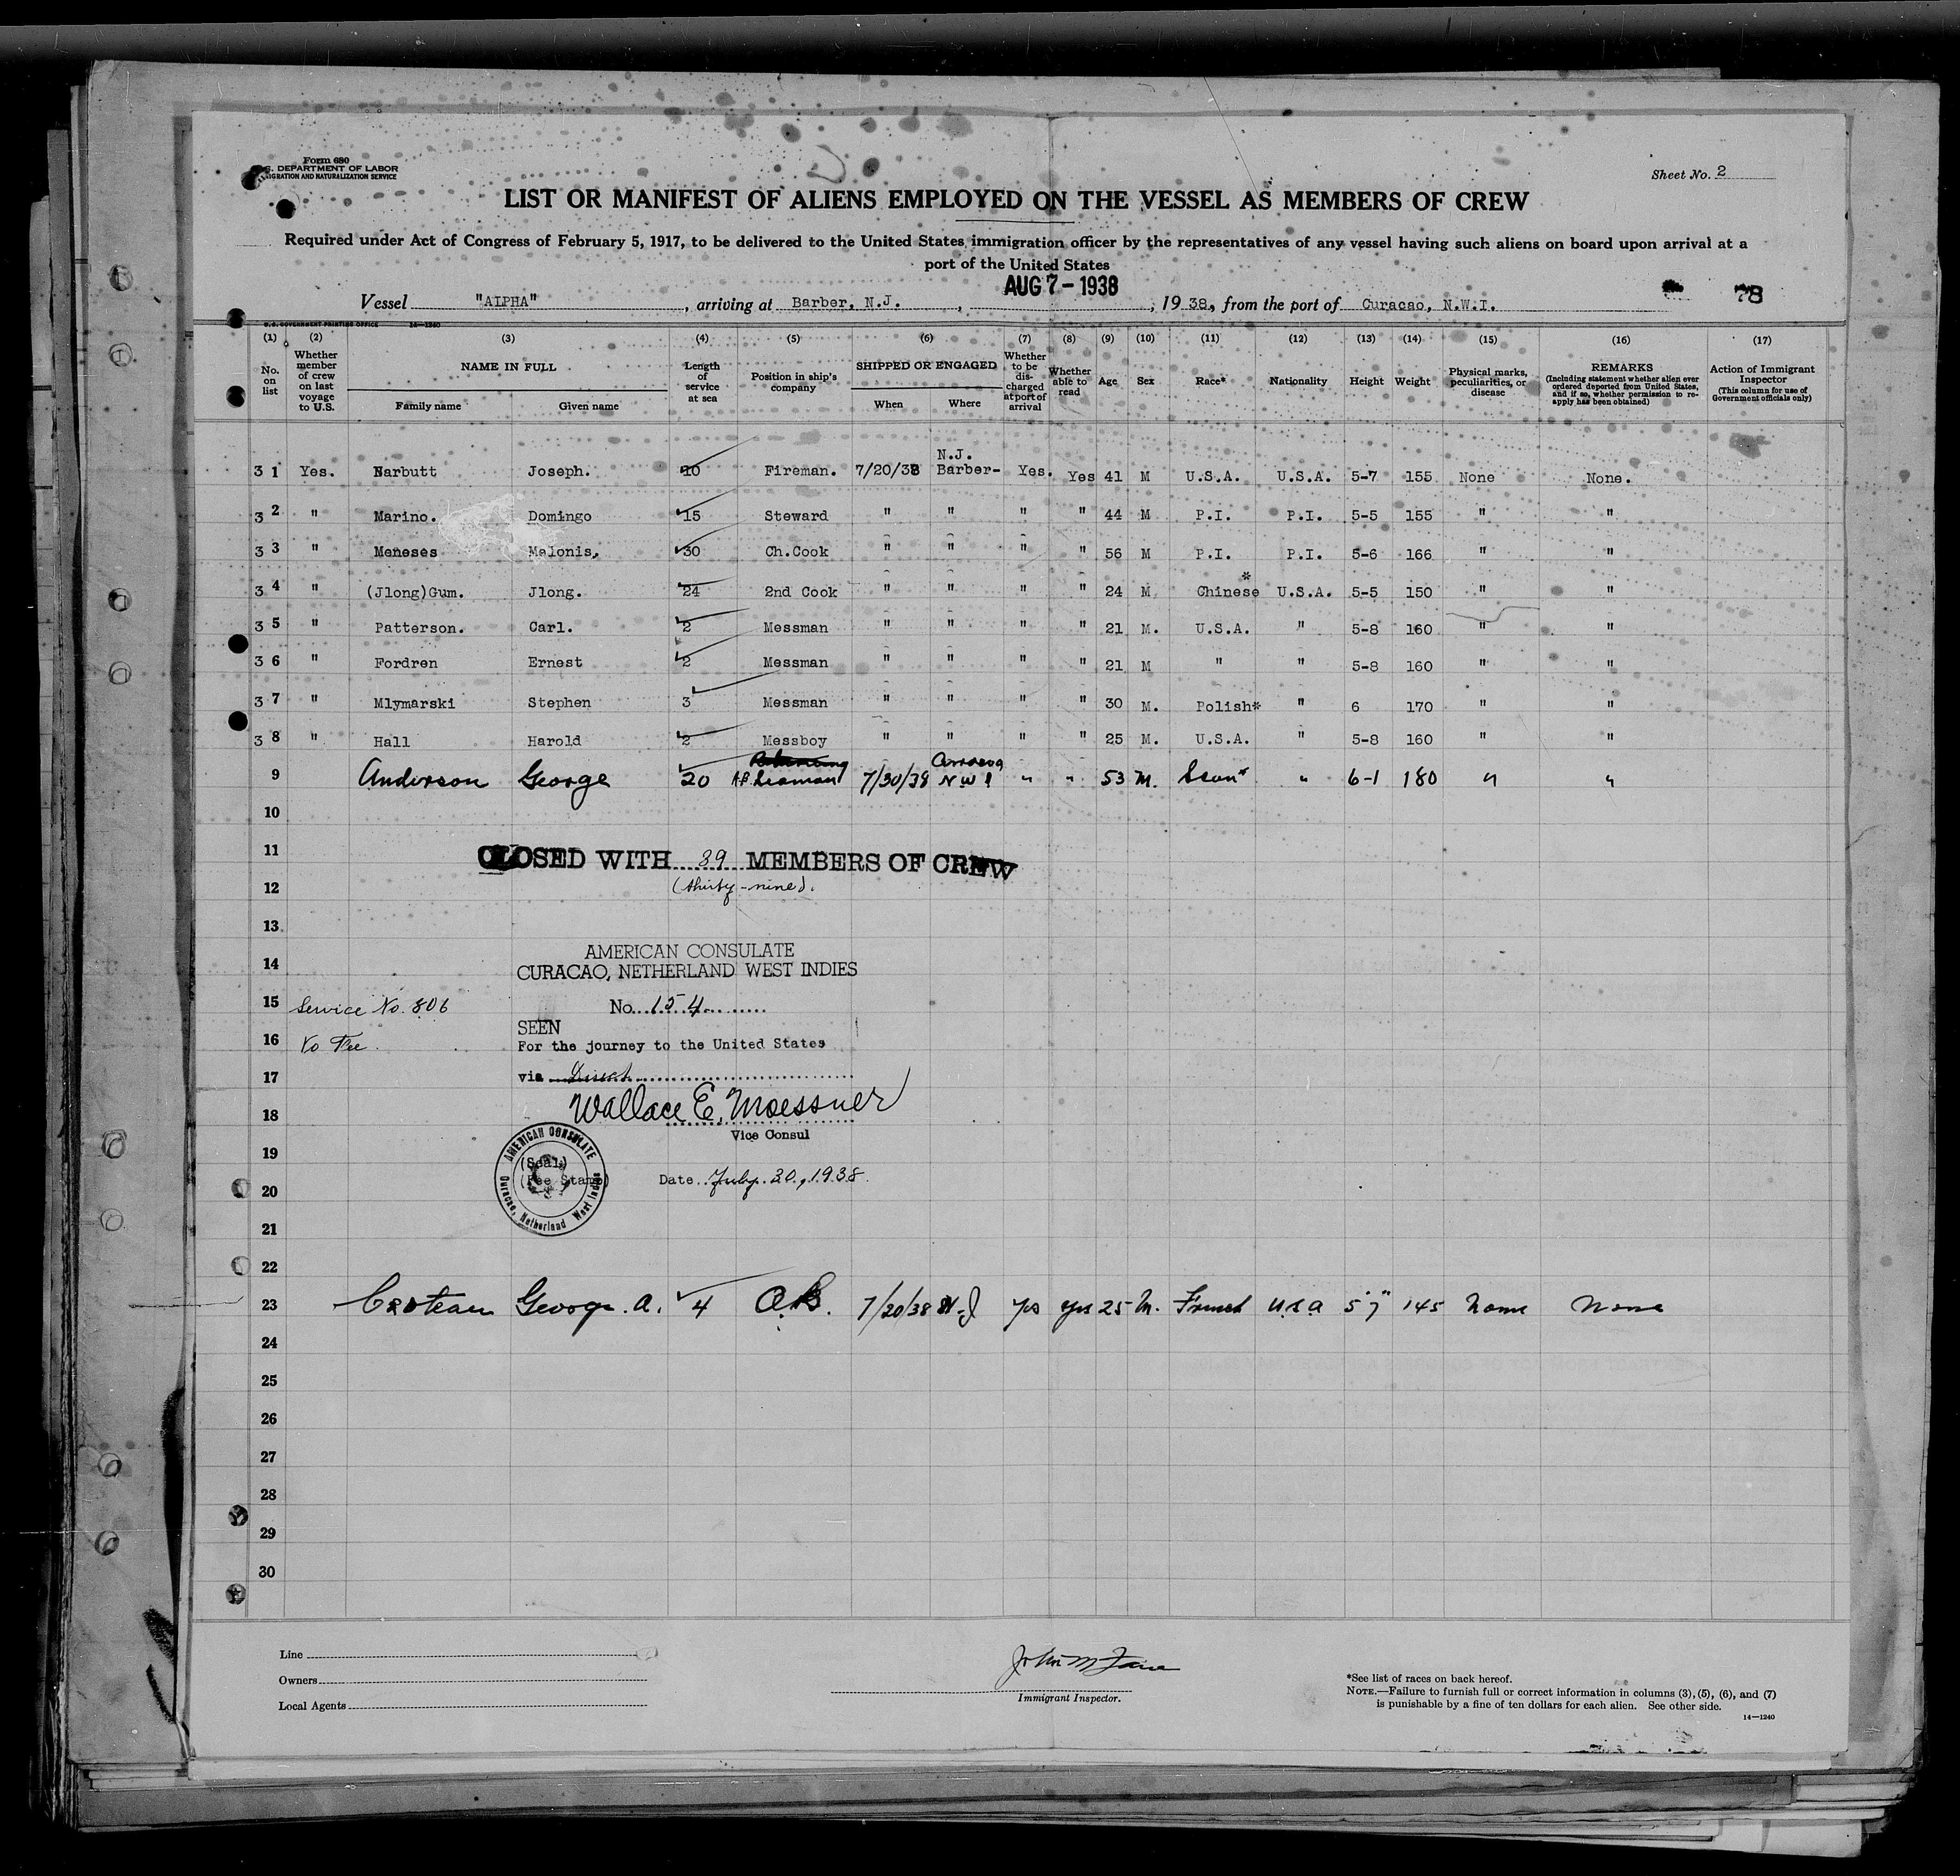 Form 680
U.S. DEPARTMENT OF LABOR
IMMIGRATION AND NATURALIZATION SERVICE
Sheet No. 2
LIST OR MANIFEST OF ALIENS EMPLOYED ON THE VESSEL AS MEMBERS OF CREW
Required under Act of Congress of February 5, 1917, to be delivered to the United States immigration officer by the representatives of any vessel having such aliens on board upon arrival at a
port of the United States
AUG 7 - 1938
Vessel "ALPHA", arriving at Barber, N.J., , 1938, from the port of Curacao, N.W.I. 78
U.S. GOVERNMENT PRINTING OFFICE 14-1240
(1) (2) (3) (4) (5) (6) (7) (8) (9) (10) (11) (12) (13) (14) (15) (16) (17)
No. on list
Whether member of crew on last voyage to U.S.
NAME IN FULL
Family name
Given name
Length of service at sea
Position in ship's company
SHIPPED OR ENGAGED
When
Where
Whether to be discharged at port of arrival
Whether able to read
Age
Sex
Race*
Nationality
Height
Weight
Physical marks, peculiarities, or disease
REMARKS
(Including statement whether alien ever ordered deported from United States, and if so, whether permission to reapply has been obtained)
Action of Immigrant Inspector
(This column for use of Government officials only)
3 1 Yes. Narbutt Joseph. 10 Fireman. 7/20/38 N.J. Barber- Yes. Yes 41 M U.S.A. U.S.A. 5-7 155 None None.
3 2 " Marino. Domingo 15 Steward " " " " 44 M P.I. P.I. 5-5 155 " "
3 3 " Meneses Melonis, 30 Ch.Cook " " " " 56 M P.I. P.I. 5-6 166 " "
3 4 " (Jlong)Gum. Jlong. 24 2nd Cook " " " " 24 M Chinese* U.S.A. 5-5 150 " "
3 5 " Patterson. Carl. 2 Messman " " " " 21 M. U.S.A. " 5-8 160 " "
3 6 " Fordren Ernest 2 Messman " " " " 21 M " " 5-8 160 " "
3 7 " Mlymarski Stephen 3 Messman " " " " 30 M. Polish* " 6 170 " "
3 8 " Hall Harold 2 Messboy " " " " 25 M. U.S.A. " 5-8 160 " "
9 Anderson George 20 A.B. Seaman 7/30/38 Curacao N W I " " 53 M. Scan* " 6-1 180 " "
10
11
CLOSED WITH 39 MEMBERS OF CREW
12
(thirty-nine).
13
AMERICAN CONSULATE
14
CURACAO, NETHERLAND WEST INDIES
15 Service No. 806
No. 154
SEEN
16 No Fee.
For the journey to the United States
17
via Direct
18
Wallace E. Moessner
Vice Consul
19
AMERICAN CONSULATE
Curacao, Netherland West Indies
(Seal)
(Fee Stamp)
Date July 30, 1938.
20
21
22
23 Croteau George A. 4 A.B. 7/20/38 N.J yes yes 25 M. French U S A 5'7" 145 None None
24
25
26
27
28
29
30
Line
Owners
Local Agents
Immigrant Inspector.
*See list of races on back hereof.
NOTE.—Failure to furnish full or correct information in columns (3), (5), (6), and (7)
is punishable by a fine of ten dollars for each alien. See other side.
14-1240